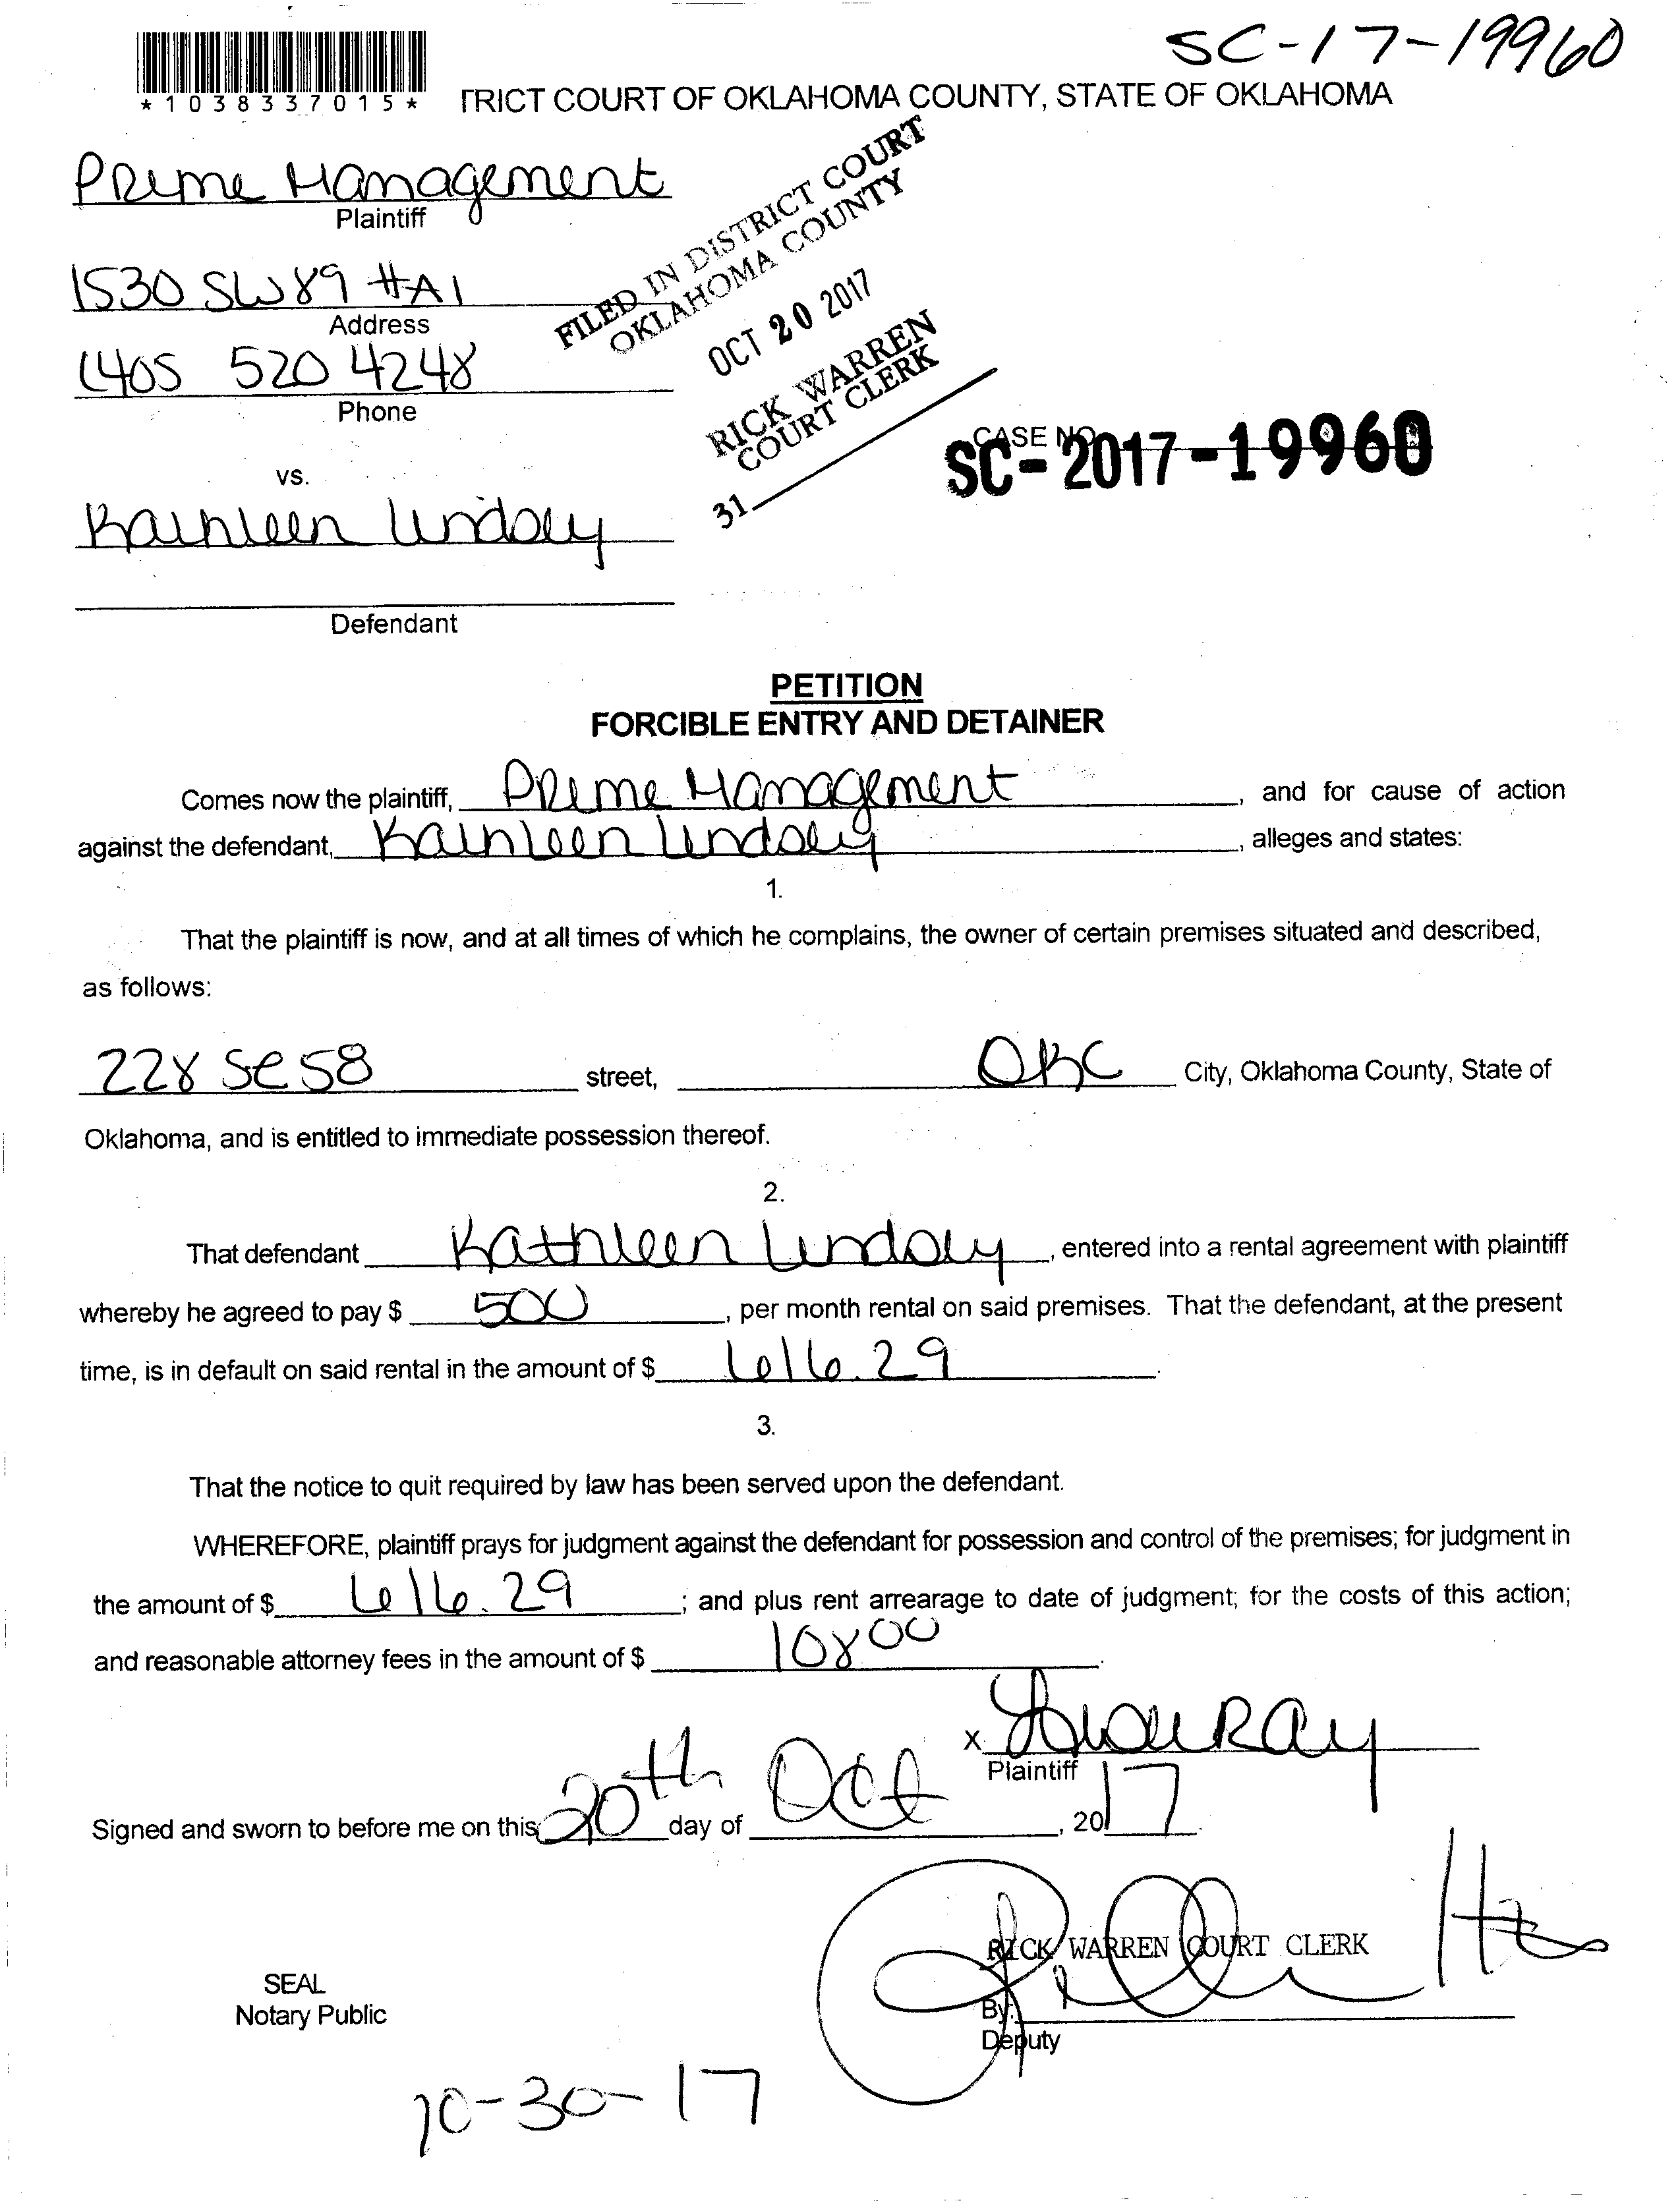 SC-17-19960
*1038337015*
TRICT COURT OF OKLAHOMA COUNTY, STATE OF OKLAHOMA
Prime Management
Plaintiff
FILED IN DISTRICT COURT
OKLAHOMA COUNTY
1530 SW 89 #A1
Address
OCT 20 2017
405 520 4248
Phone
RICK WARREN
COURT CLERK
CASE NO.
SC-2017-19960
vs.
31
Kathleen Lindsey
Defendant
PETITION
FORCIBLE ENTRY AND DETAINER
Comes now the plaintiff, Prime Management, and for cause of action
against the defendant, Kathleen Lindsey, alleges and states:
1.
That the plaintiff is now, and at all times of which he complains, the owner of certain premises situated and described,
as follows:
228 SE 58 street, OKC City, Oklahoma County, State of
Oklahoma, and is entitled to immediate possession thereof.
2.
That defendant Kathleen Lindsey, entered into a rental agreement with plaintiff
whereby he agreed to pay $ 500, per month rental on said premises. That the defendant, at the present
time, is in default on said rental in the amount of $ 616.29.
3.
That the notice to quit required by law has been served upon the defendant.
WHEREFORE, plaintiff prays for judgment against the defendant for possession and control of the premises; for judgment in
the amount of $ 616.29; and plus rent arrearage to date of judgment; for the costs of this action;
and reasonable attorney fees in the amount of $ 108 00.
x Ray
Plaintiff
Signed and sworn to before me on this 20th day of Oct, 2017.
RICK WARREN COURT CLERK
SEAL
Notary Public
By:
Deputy
10-30-17